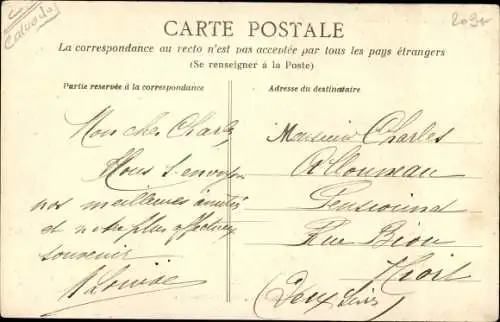 Calvados
209
CARTE POSTALE
La correspondance au recto n'est pas acceptée par tous les pays étrangers
(Se renseigner à la Poste)
Partie reservée à la correspondance
Adresse du destinataire
Mon cher Charles
Nous t'envoyons
nos meilleures amitiés
et notre plus affectueux
souvenir
Louise
Monsieur Charles
Allonneau
Pensionnat
Rue Bion
Niort
(Deux Sèvres)